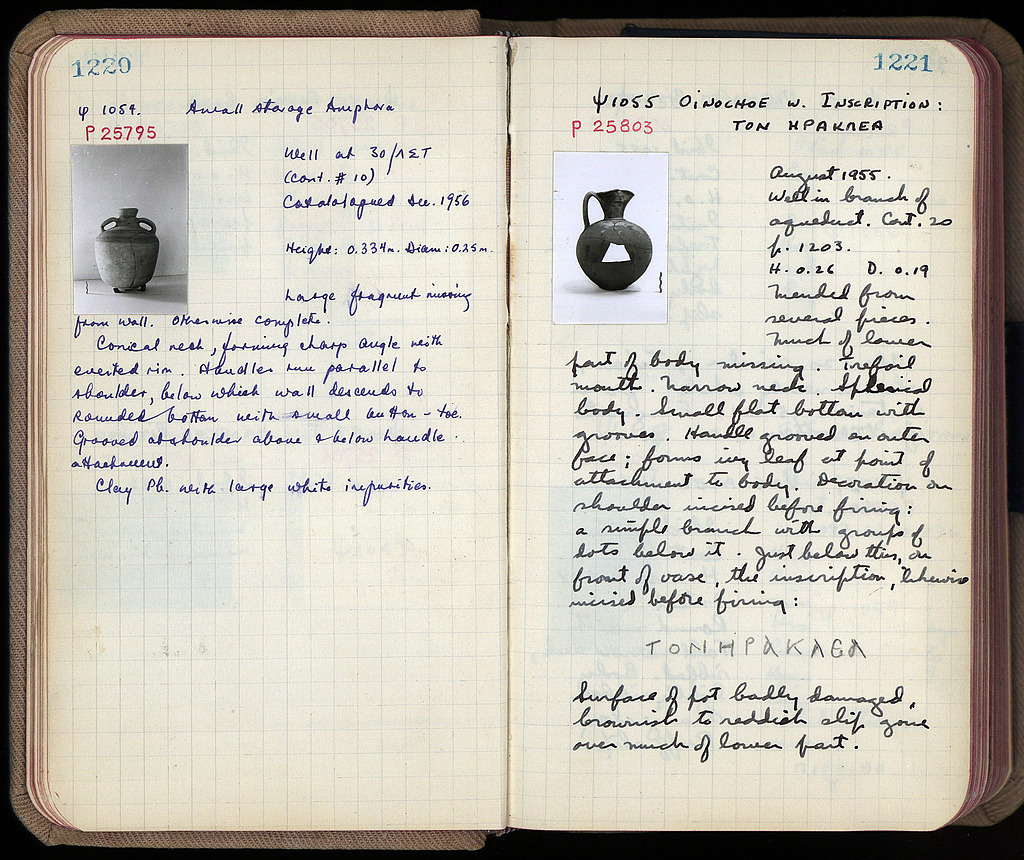 1220
ψ 1054. Small storage Amphora
P 25795
Well at 30/ΛΣΤ
(Cont. # 10)
Catalogued Dec. 1956
Height: 0.334m. Diam: 0.25m.
Large fragment missing
from wall. Otherwise complete.
Conical neck, forming sharp angle with
everted rim. Handles run parallel to
shoulder, below which wall descends to
rounded bottom with small button-toe.
Grooved at shoulder above & below handle
attachment.
Clay Pb. with large white impurities.
1221
ψ1055 OINOCHOE W. INSCRIPTION:
P 25803
ΤΟΝ ΗΡΑΚΛΕΑ
August 1955.
Well in branch of
aqueduct. Cont. 20
p. 1203.
H. 0.26 D. 0.19
Mended from
several pieces.
Much of lower
part of body missing. Trefoil
mouth. Narrow neck. Spherical
body. Small flat bottom with
grooves. Handle grooved on outer
face; forms ivy leaf at point of
attachment to body. Decoration on
shoulder incised before firing:
a simple branch with groups of
dots below it. Just below this, on
front of vase, the inscription, likewise
incised before firing:
ΤΟΝΗΡΑΚΛΕΑ
Surface of pot badly damaged,
brownish to reddish slip gone
over much of lower part.